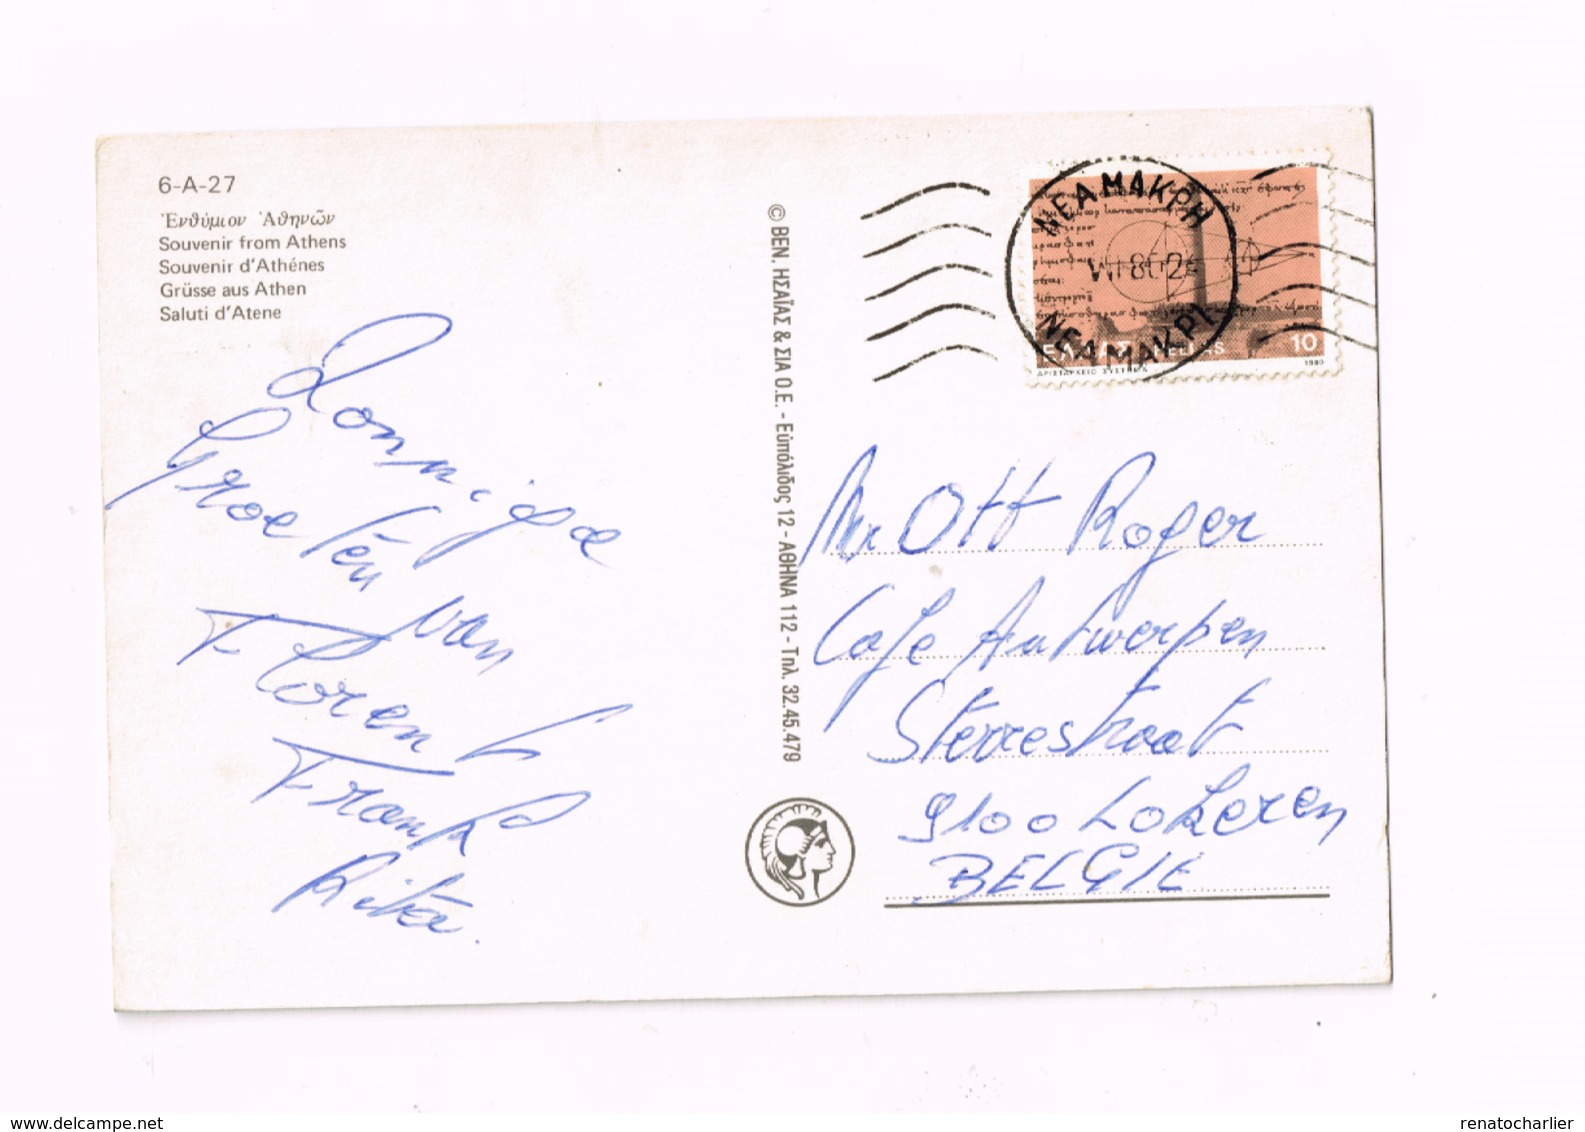 6-A-27
Ἐνθύμιον Ἀθηνῶν
Souvenir from Athens
Souvenir d'Athénes
Grüsse aus Athen
Saluti d'Atene
Zonnige
Groeten
van
Florent
Frank
Rita.
© ΒΕΝ. ΗΣΑΪΑΣ & ΣΙΑ Ο.Ε. - Εὐπόλιδος 12 - ΑΘΗΝΑ 112 - Τηλ. 32.45.479
ΝΕΑ ΜΑΚΡΗ
ΝΕΑ ΜΑΚΡΙ
ΕΛΛΑΣ HELLAS 10
ΑΡΙΣΤΑΡΧΕΙΟ ΣΥΣΤΗΜΑ 1980
Mr Ott Roger
Cafe Antwerpen
Sterrestraat
9100 Lokeren
BELGIE
renatocharlier
delcampe.net